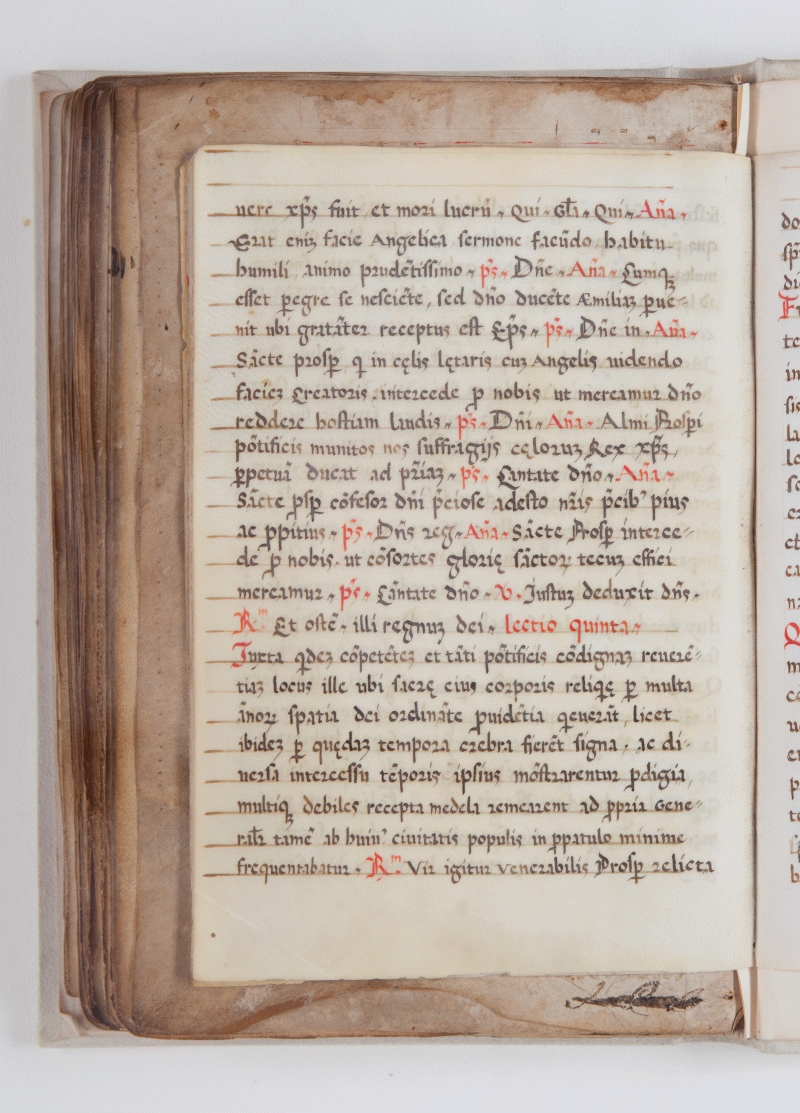 uere xp̃s fuit et mori lucrũ, Qui, Gl̃a, Qui, Aña,
Erat eniʒ facie Angelica sermone facũdo habitu
humili animo prudẽtissimo, ps̃, Dñe, Aña, Cumqꝫ
esset ꝑegre se nesciẽte, sed dño ducẽte Æmiliaʒ ꝑue=
nit ubi gratãter receptus est Ep̃s, ps̃, Dñe in, Aña,
Sãcte prosꝑ q in cęlis lętaris cuʒ Angelis uidendo
facieʒ Creatoris, intercede ꝓ nobis ut mereamur dño
reddere hostiam laudis, ps̃, Dñi, Aña, Almi Prosꝑi
põtificis munitos nos suffragijs cęloruʒ Rex xp̃s,
ꝑpetuã ducat ad pr̃iaʒ, ps̃, Cantate dño, Aña,
Sãcte psꝑ cõfesor dñi p̃ciose adesto nr̃is p̃cibꝰ pius
ac ꝓpitius, ps̃, Dñs reg, Aña, Sãcte Prosꝑ interce=
de ꝓ nobis, ut cõsortes glorię sãctoꝝ tecuʒ effici
mereamur, ps̃, Cãntate dño, V, Justuʒ deduxit dñs,
Rm Et ostẽ, illi regnuʒ dei, lectio quinta,
Juxta qdeʒ cõpetẽteʒ et tãti põtificis cõdignaʒ reuerẽ=
tiaʒ locus ille ubi sacrę eius corporis reliqę ꝑ multa
ãnoꝝ spatia dei ordinãte ꝓuidẽtia qeuerãt, licet
ibideʒ ꝑ quędaʒ tempora crebra fierẽt signa, ac di=
uersa intercessu tẽporis ipsius mõstrarentur ꝓdigia,
multiqꝫ debiles recepta medela remearent ad ꝓpria Gene=
ralr̃ tamẽ ab huiuꝰ ciuitatis populis in ꝓpatulo minime
frequentabatur, Rm Vir igitur venerabilis Prosꝑ relicta